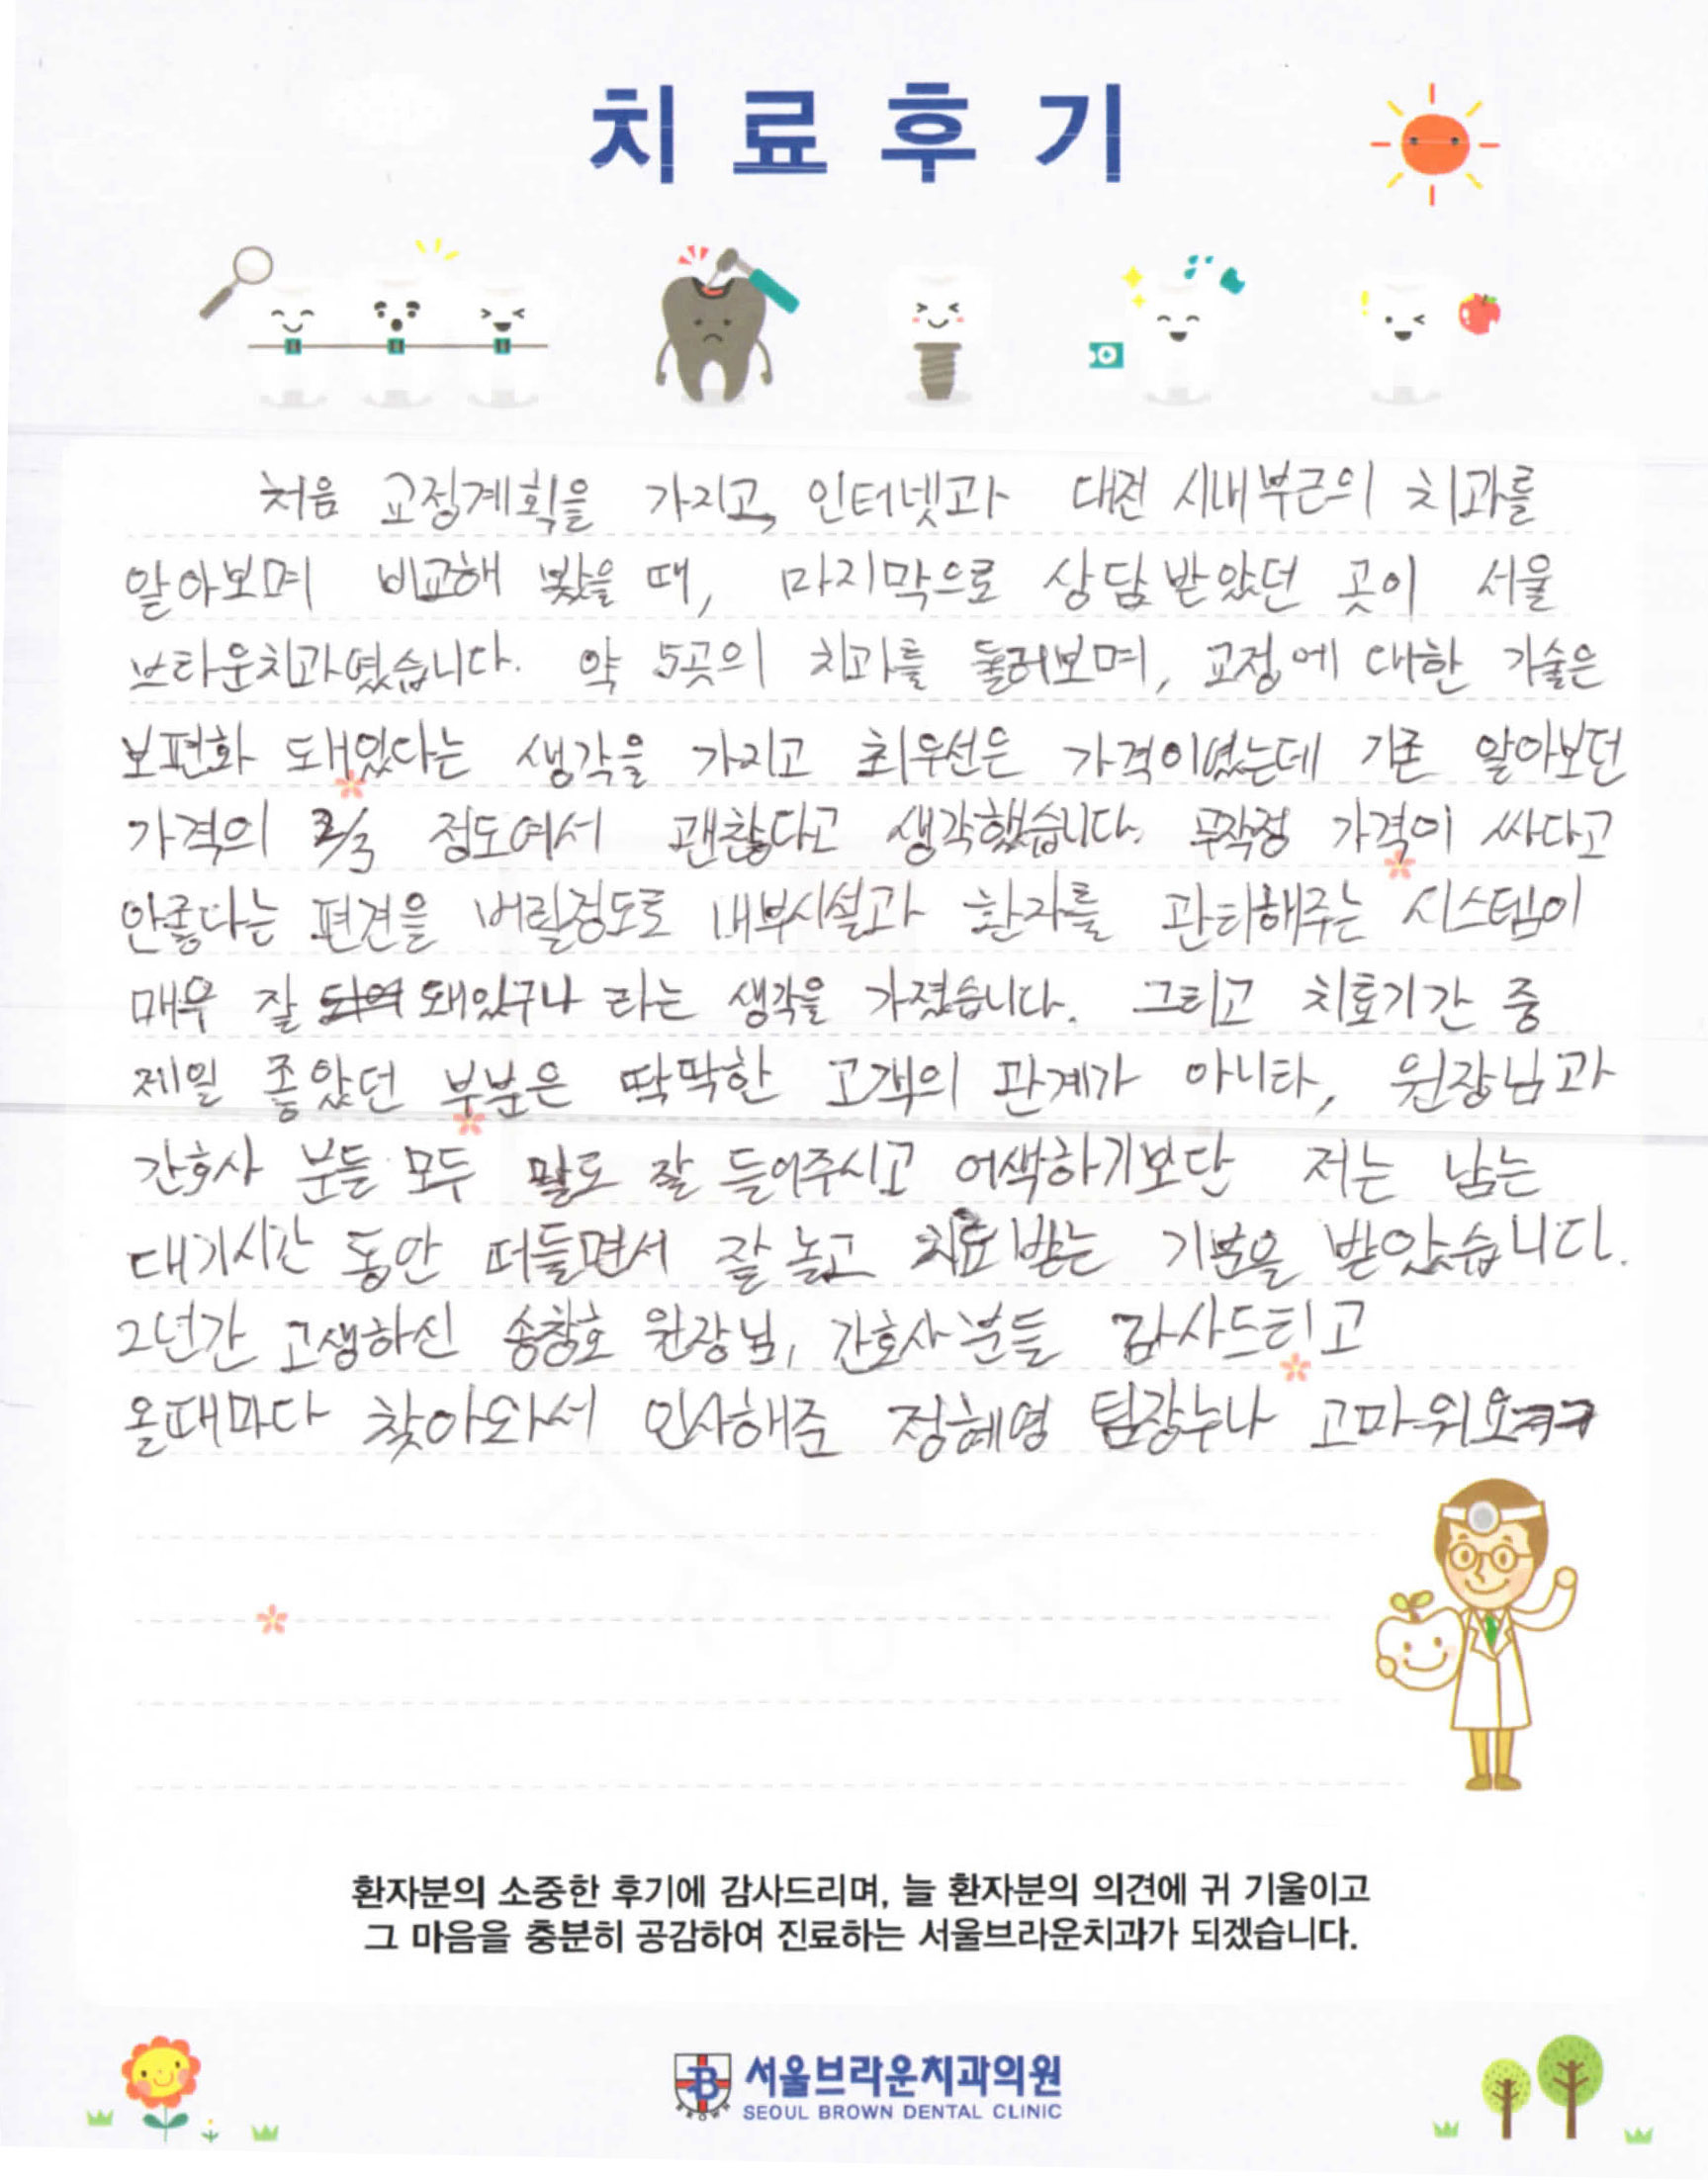 치료후기
처음 교정계획을 가지고, 인터넷과 대전 시내부근의 치과를
알아보며 비교해 봤을 때, 마지막으로 상담받았던 곳이 서울
브라운치과였습니다. 약 5곳의 치과를 둘러보며, 교정에 대한 기술은
보편화 돼있다는 생각을 가지고 최우선은 가격이였는데 기존 알아보던
가격의 2/3 정도여서 괜찮다고 생각했습니다. 무작정 가격이 싸다고
안좋다는 편견을 버릴정도로 내부시설과 환자를 관리해주는 시스템이
매우 잘 돼있구나 라는 생각을 가졌습니다. 그리고 치료기간 중
제일 좋았던 부분은 딱딱한 고객의 관계가 아니라, 원장님과
간호사 분들 모두 말도 잘 들어주시고 어색하기보단 저는 남는
대기시간 동안 떠들면서 잘 놀고 치료 받는 기분을 받았습니다.
2년간 고생하신 송창호 원장님, 간호사분들 감사드리고
올때마다 찾아와서 인사해준 정혜영 팀장누나 고마워요ㅋㅋ
환자분의 소중한 후기에 감사드리며, 늘 환자분의 의견에 귀 기울이고
그 마음을 충분히 공감하여 진료하는 서울브라운치과가 되겠습니다.
B 서울브라운치과의원
BROWN SEOUL BROWN DENTAL CLINIC